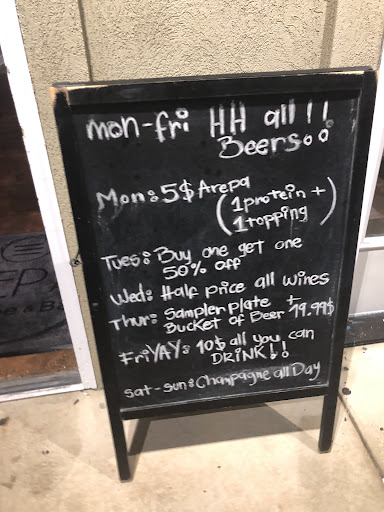 mon-fri HH all!!
Beers
Mon: 5$ Arepa
(1 protein +
1 topping)
Tues: Buy one get one
50% off
Wed: Half price all wines
Thur: Sampler plate +
Bucket of Beer 19.99$
FriYAY: 10$ all you can
DRINK!!
sat-sun: Champagne all Day